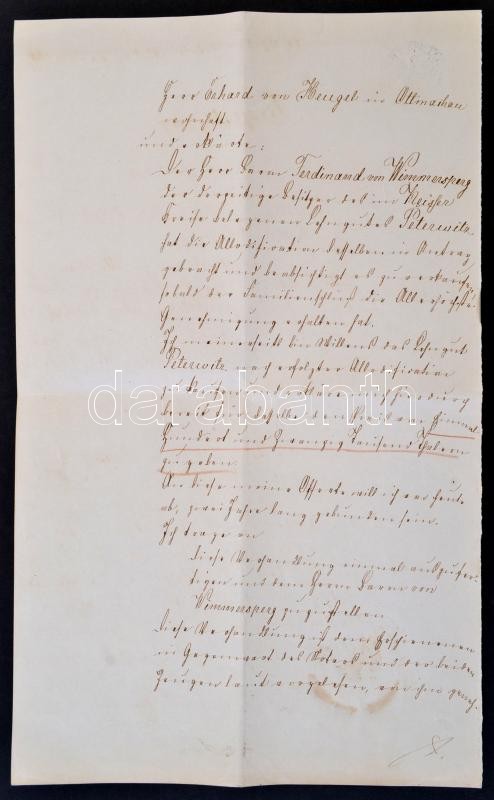 Herr Erhard von Heugel in Ottmachau
wohnhaft
und erklärte:
Der Herr Baron Ferdinand von Wimmersperg
der derzeitige Besitzer des im Neisser
Kreise belegenen Lehngutes Peterwitz
hat die Allodification desselben in Antrag
gebracht und beabsichtigt es zu verkaufen
sobald der Familienschluß die Allerhöchste
Genehmigung erhalten hat.
Ich meinerseits bin Willens das Lehngut
Peterwitz nach erfolgter Allodification
zu kaufen und erkläre mich hierdurch
bereit für dasselbe den Preis von Einmal
Hundert und Zwanzig Tausend Thalern
zu geben.
An diese meine Offerte will ich von heut
ab, zwei Jahre lang gebunden sein.
Ich trage an
diese Verhandlung einmal auszufer-
tigen und dem Herrn Baron von
Wimmersperg zuzustellen
Diese Verhandlung ist dem Erschienenen
in Gegenwart des Notars und der beiden
Zeugen laut vorgelesen, von ihm geneh-
darabanth